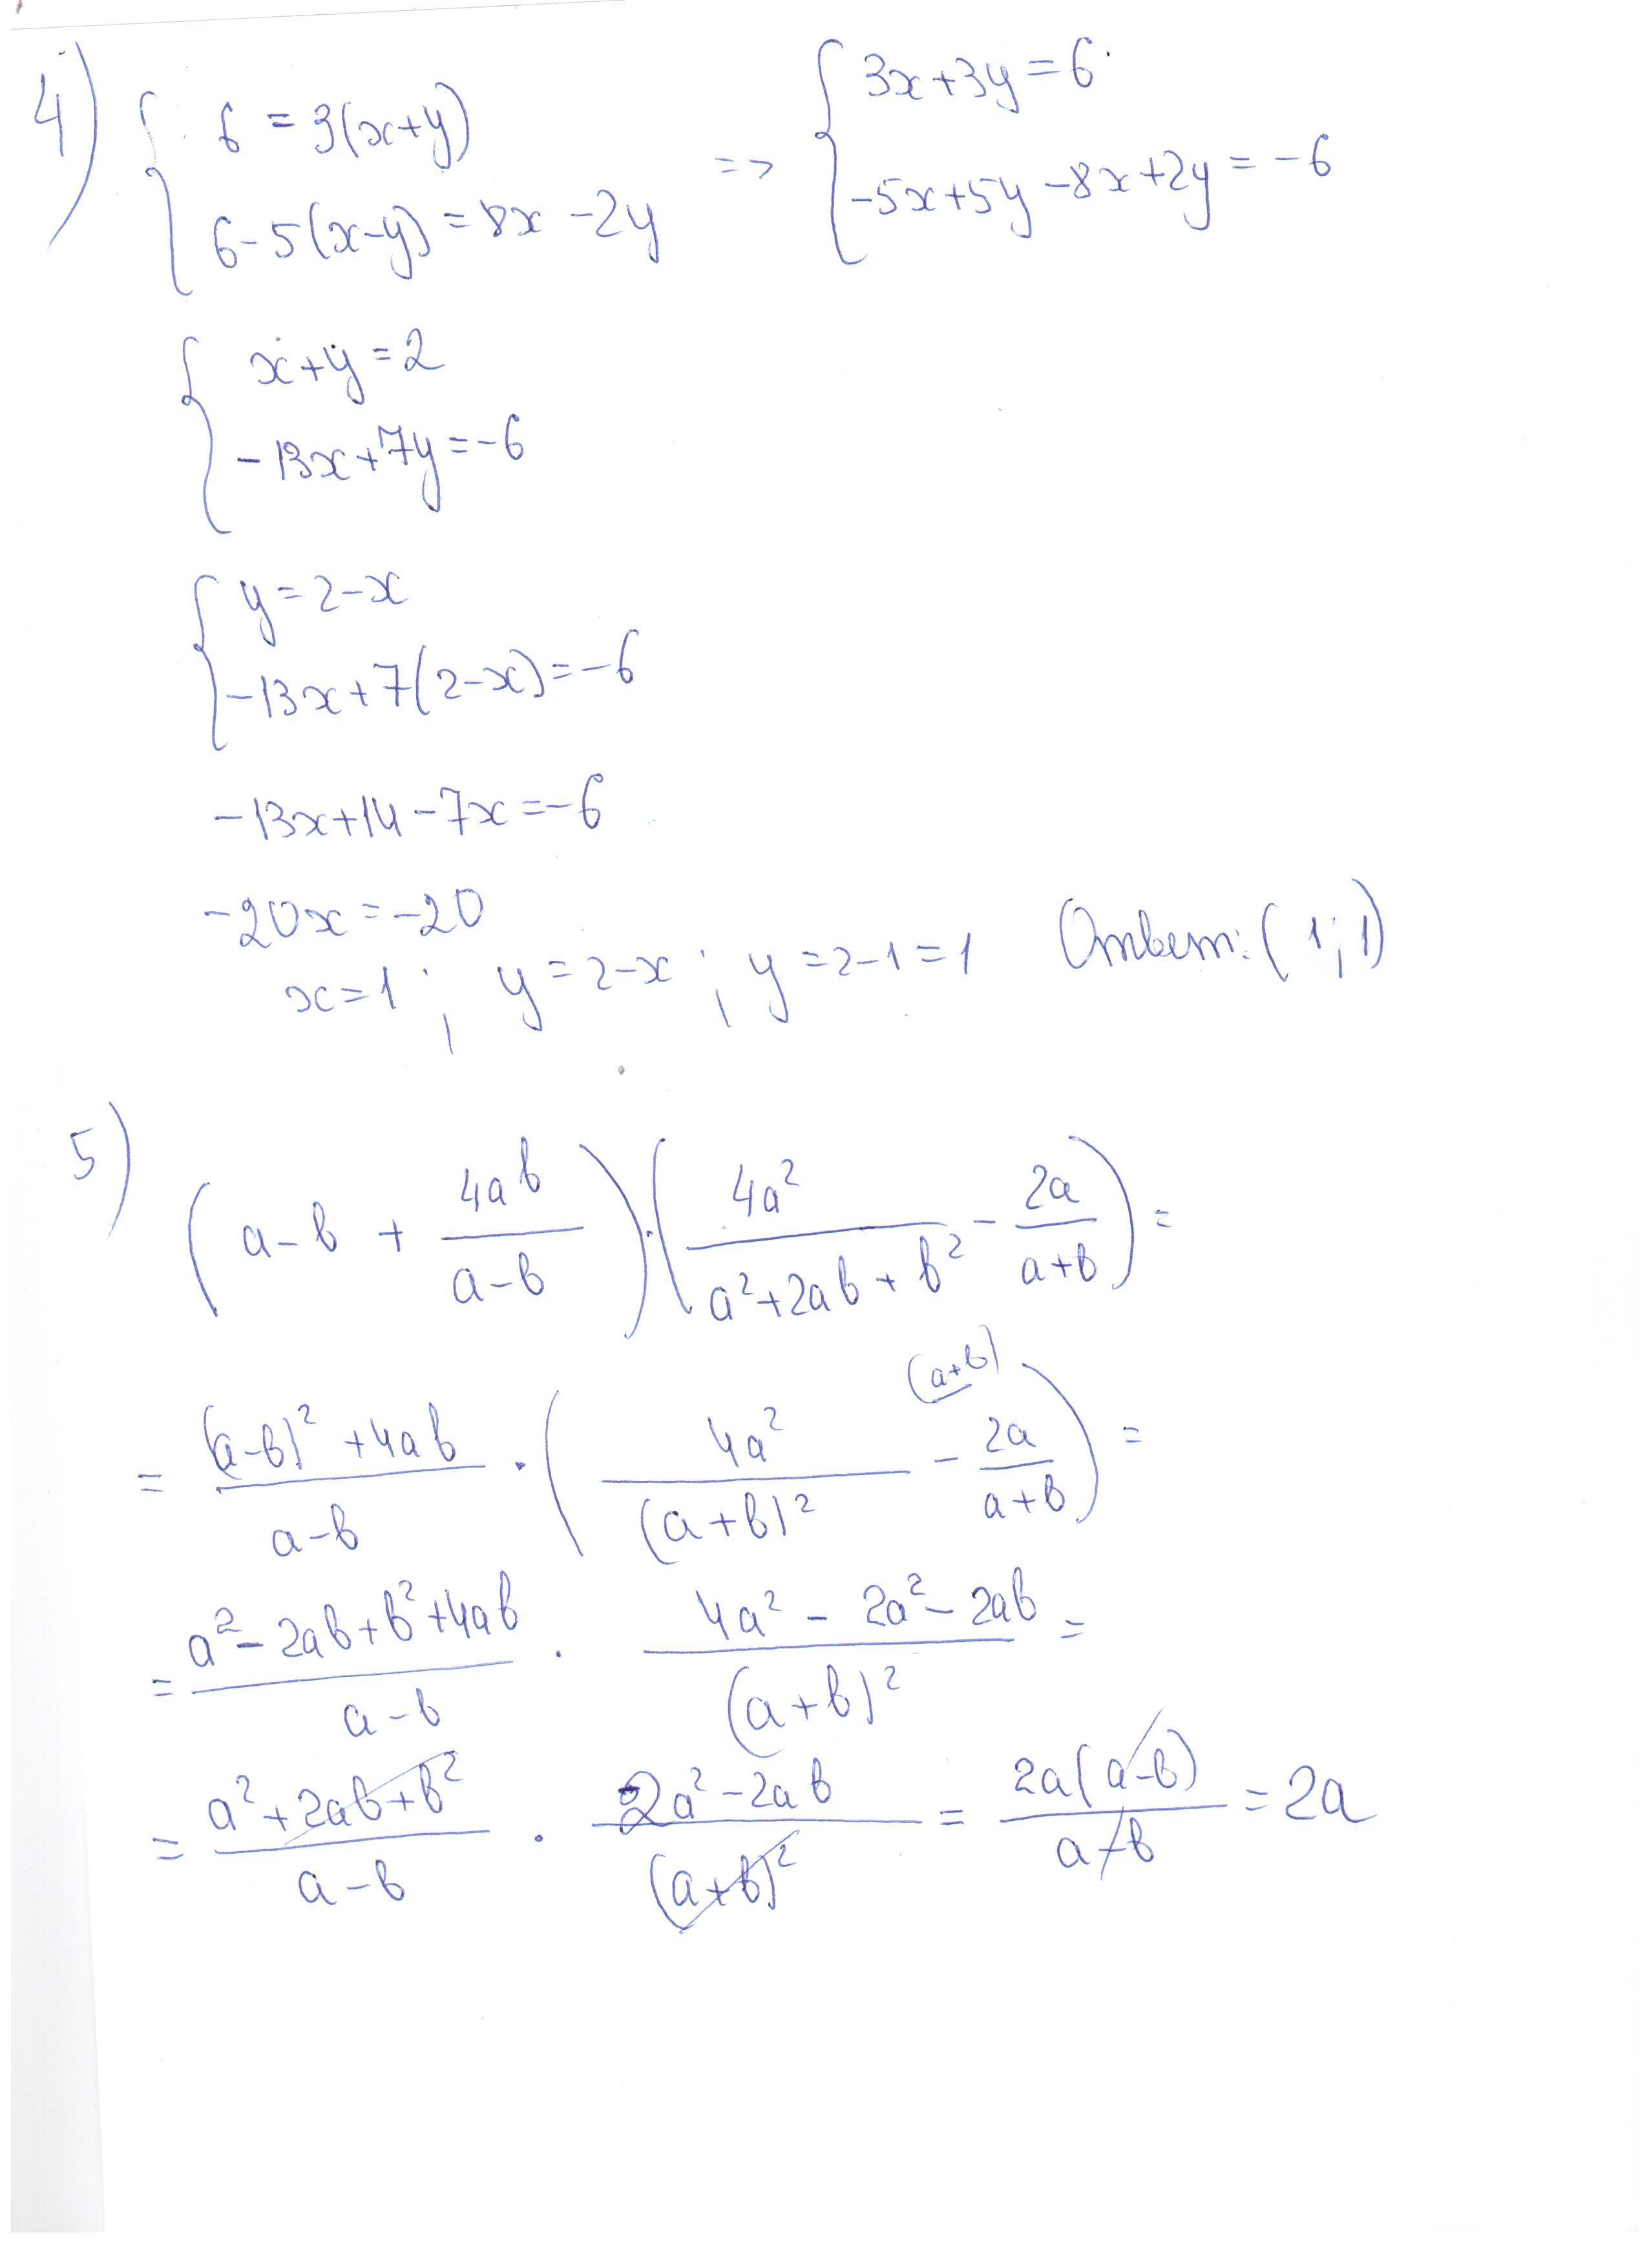 4) { 6 = 3(x+y)
6-5(x-y) = 8x -2y
=> { 3x+3y=6
-5x+5y-8x+2y=-6
{ x+y=2
-13x+7y=-6
{ y=2-x
-13x+7(2-x)=-6
-13x+14-7x=-6
-20x=-20
x=1 ; y=2-x ; y=2-1=1 Ответ: (1;1)
5) (a-b + 4ab/(a-b)) · (4a²/(a²+2ab+b²) - 2a/(a+b)) =
= ((a-b)²+4ab)/(a-b) · (4a²/(a+b)² - 2a/(a+b) (a+b)) =
= (a²-2ab+b²+4ab)/(a-b) · (4a²-2a²-2ab)/(a+b)² =
= (a²+2ab+b²)/(a-b) · (2a²-2ab)/(a+b)² = 2a(a-b)/(a-b) = 2a